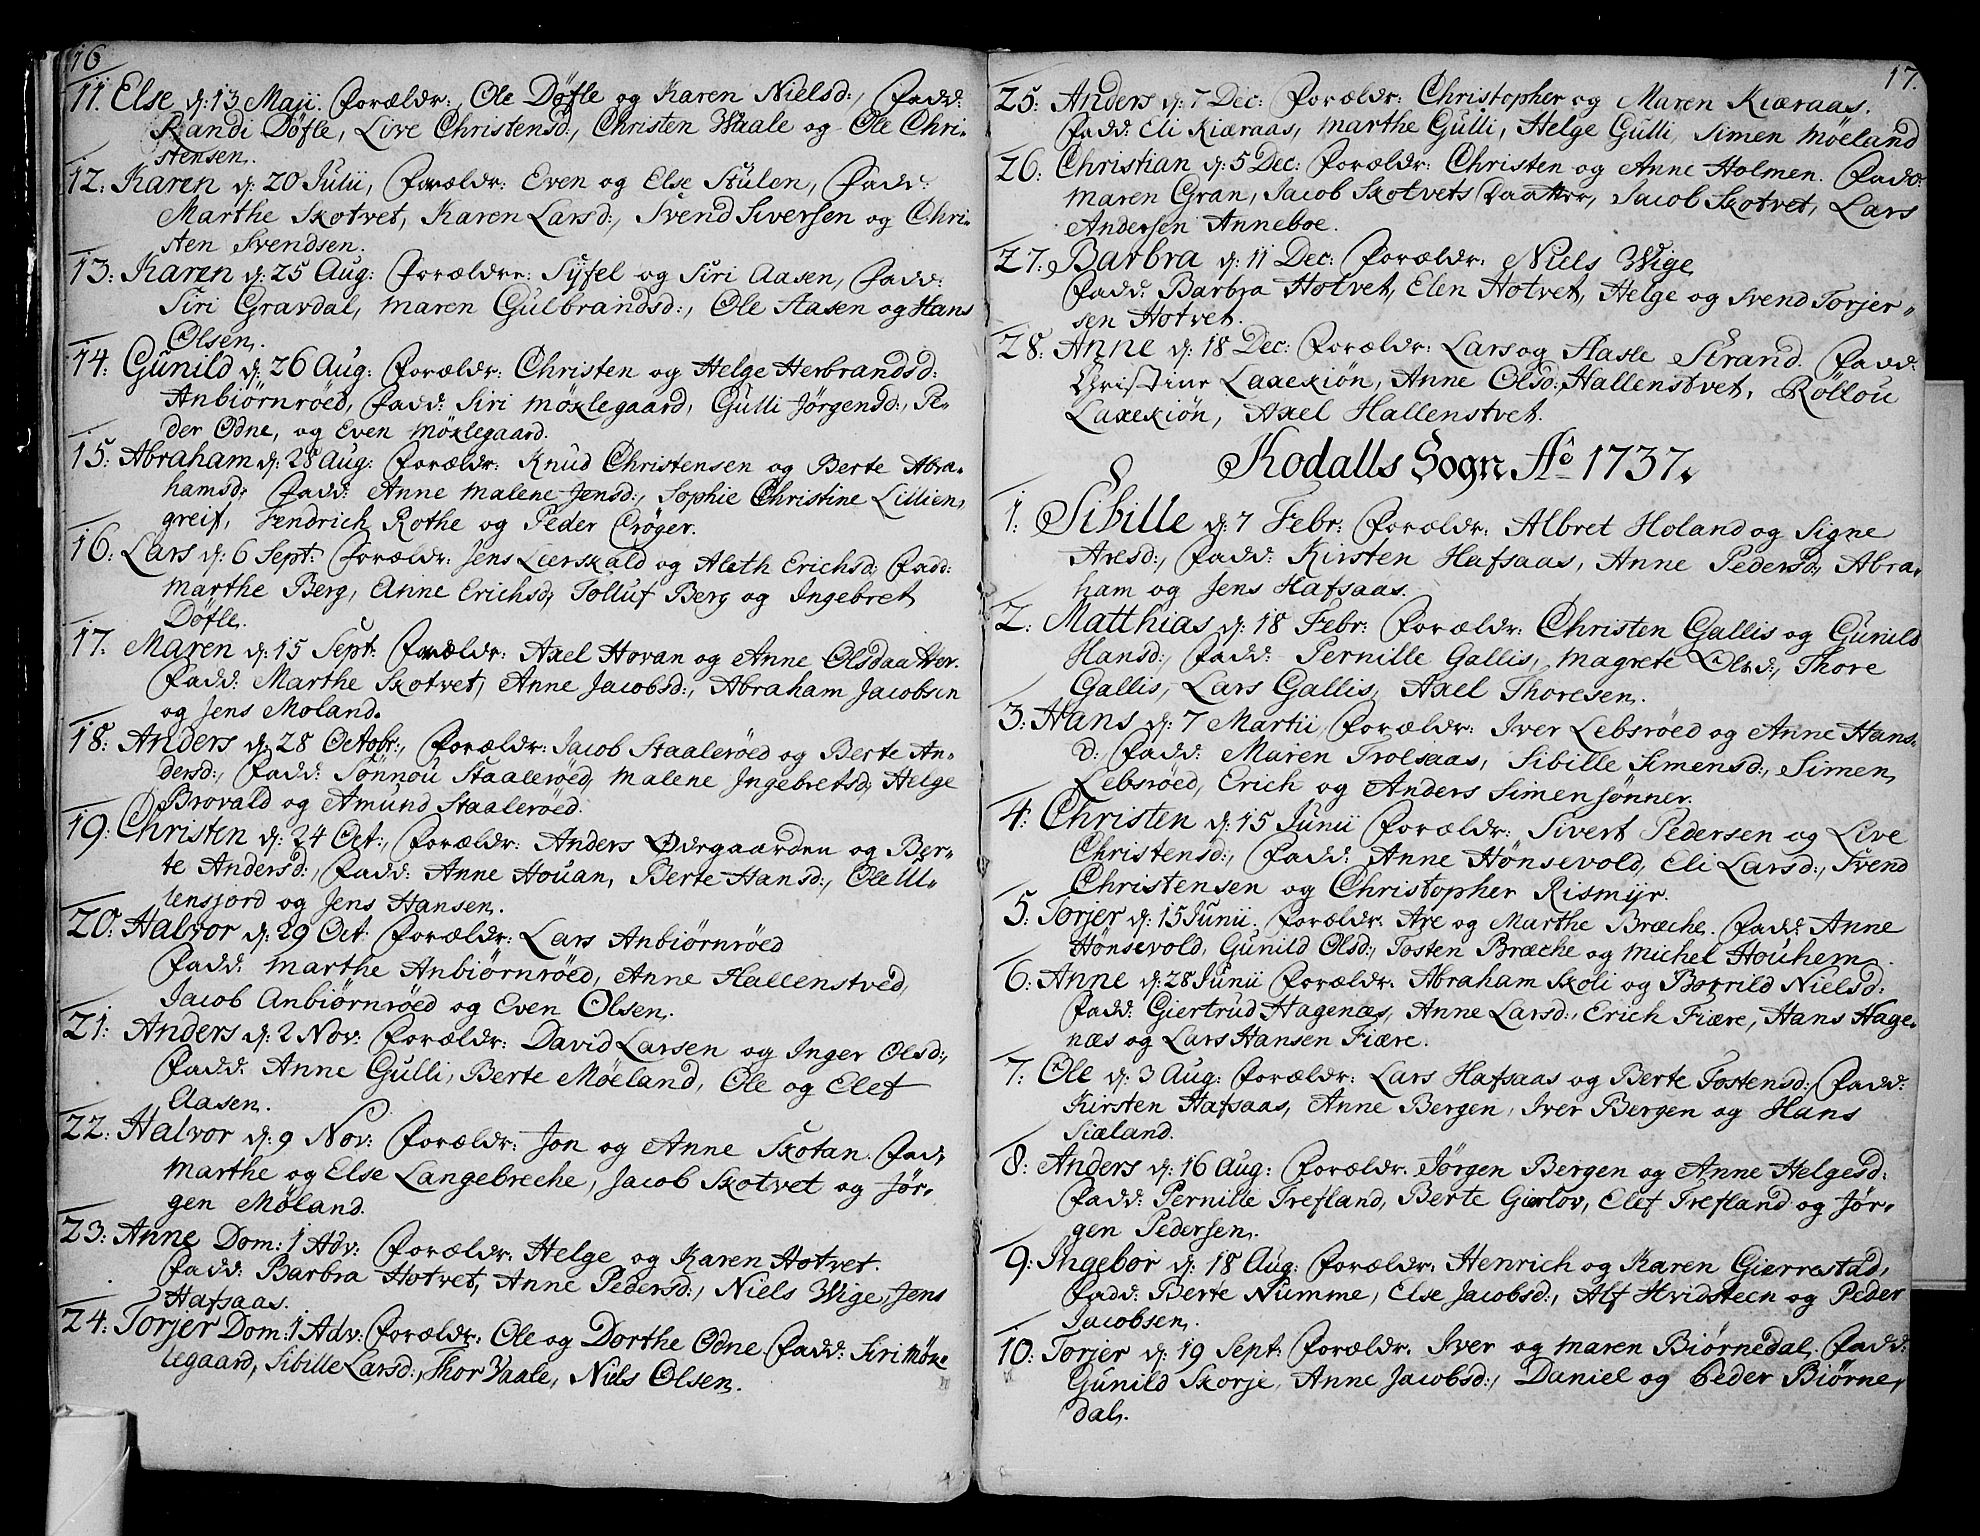 16
11. Else d: 13 Maji. Forældr: Ole Døfle og Karen Nielsd:, Fadd:
Randi Døfle, Live Christensd:, Christen Waale og Ole Chri-
stensen.
12. Karen d: 20 Julii, Forældr: Even og Else Stulen, Fadd:
Marthe Skotvet, Karen Larsd:, Svend Sversen og Chri-
sten Svendsen.
13. Karen d: 25 Aug: Forældre: Syfel og Siri Aasen, Fadd:
Siri Gravdal, Maren Gulbrandsd:, Ole Aasen og Hans
Olsen.
14. Gunild d: 26 Aug: Forældr: Christen og Helge Herbrandsd:
Anbiørnrøed, Fadd: Siri Møklegaard, Gulli Jørgensd:, Pe-
der Odne, og Even Møklegaard.
15. Abraham d: 28 Aug: Forældr: Knud Christensen og Berte Abra-
hamsd: Fadd: Anne Malene Jensd:, Sophie Christine Lillien,
greif, Fendrich Rothe og Peder Crøger.
16. Lars d: 6 Sept: Forældr: Jens Lierskald og Aleth Erichsd: Fadd:
Marthe Berg, Anne Erichsd:, Tolluf Berg og Ingebret
Døfle.
17. Maren d: 15 Sept: Forældr: Axel Hovan og Anne Olsdaatter.
Fadd: Marthe Skotvet, Anne Jacobsd:, Abraham Jacobsen
og Jens Moland.
18: Anders d: 28 Octobr:, Forældr: Jacob Staalerøed og Berte An-
dersd:, Fadd: Sønnou Staalerøed, Malene Ingebretsd, Helge
Brovald og Amund Staalerøed.
19: Christen d: 24 Oct:, Forældr: Anders Ødegaarden og Ber-
te Andersd:, Fadd: Anne Houan, Berte Hansd:, Ole Ul-
lensjord og Jens Hansen.
20: Halvor d: 29 Oct: Forældr: Lars Anbiørnrøed
Fadd: Marthe Anbiørnrøed, Anne Hallenstved,
Jacob Anbiørnrøed og Even Olsen.
21: Anders d: 2 Nov: Forældr: David Larsen og Inger Olsd:,
Fadd: Anne Gulli, Berte Møeland, Ole og Elef
Aasen.
22: Halvor d: 9 Nov: Forældr: Jon og Anne Skotan. Fad,
Marthe og Else Langebreche, Jacob Skotvet og Jør-
gen Møland.
23: Anne Dom: 1 Adv: Forældr: Helge og Karen Hotvet.
Fadd: Barbra Hotvet, Anne Pedersd:, Niels Wige, Jens
Hafsaas.
24: Torjer Dom: 1 Adv: Forældr: Ole og Dorthe Odne. Fadd: Siri Møk-
legaard, Sibille Larsd:, Thor Vaale, Niels Olsen.
17.
25: Anders d: 7 Dec: Forældr: Christopher og Maren Kiæraas.
Fadd: Eli Kiæraas, Marthe Gulli, Helge Gulli, Simen Møeland
26: Christian d: 5 Dec: Forældr: Christen og Anne Holmen. Fadd:
Maren Gran, Jacob Skotvets Daatter, Jacob Skotvet, Lars
Andersen Anneboe.
27: Barbra d: 11 Dec: Forældr: Niels Wige
Fadd: Barbra Hotvet, Elen Hotvet, Helge og Svend Torjer-
sen Hotvet.
28: Anne d: 18 Dec: Forældr: Lars og Aasle Strand. Fadd:
Christine Laxekiøn, Anne Olsd: Hallenstvet, Rollou
Laxekiøn, Axel Hallenstvet.
Kodalls Sogn Ao 1737.
1: Sibille d: 7 Febr: Forældr: Albret Holand og Signe
Aresd:, Fadd: Kirsten Hafsaas, Anne Pedersd:, Abra-
ham og Jens Hafsaas.
2: Matthias d: 18 Febr: Forældr: Christen Gallis og Gunild
Hansd:, Fadd: Pernille Gallis, Magrete Olsd:, Thore
Gallis, Lars Gallis, Axel Thoresen.
3: Hans d: 7 Martii, Forældr: Iver Lebsrøed og Anne Hans-
d: Fadd: Maren Trolsaas, Sibille Simensd:, Simen
Lebsrøed, Erich og Anders Simensønner.
4: Christen d: 15 Junii Forældr: Sivert Pedersen og Live
Christensd:, Fadd: Anne Hønsevold, Eli Larsd:, Svend
Christensen og Christopher Rismyr.
5: Torjer d: 15 Junii. Forældr: Are og Marthe Bræche. Fadd: Anne
Hønsevold, Gunild Olsd:, Tosten Bræche og Michel Houhem.
6: Anne d: 28 Junii Forældr: Abraham Skoli og Borrild Nielsd:
Fadd: Giertrud Hagenæs, Anne Larsd:, Erich Fiære, Hans Hage-
næs og Lars Hansen Fiære.
7: Ole d: 3 Aug: Forældr: Lars Hafsaas og Berte Tostensd: Fadd:
Kirsten Hafsaas, Anne Bergen, Iver Bergen og Hans
Siæland.
8: Anders d: 16 Aug: Forældr: Jørgen Bergen og Anne Helgesd:
Fadd: Pernille Trefland, Berte Gierlov, Elef Trefland og Jør-
gen Pedersen.
9: Ingebor d: 18 Aug: Forældr: Henrich og Karen Gierrestad,
Fadd: Berte Numme, Else Jacobsd:, Alf Hvidsteen og Peder
Jacobsen.
10: Torjer d: 19 Sept: Forældr: Iver og Maren Biørnedal. Fadd:
Gunild Skorje, Anne Jacobsd:, Daniel og Peder Biørne-
dal.